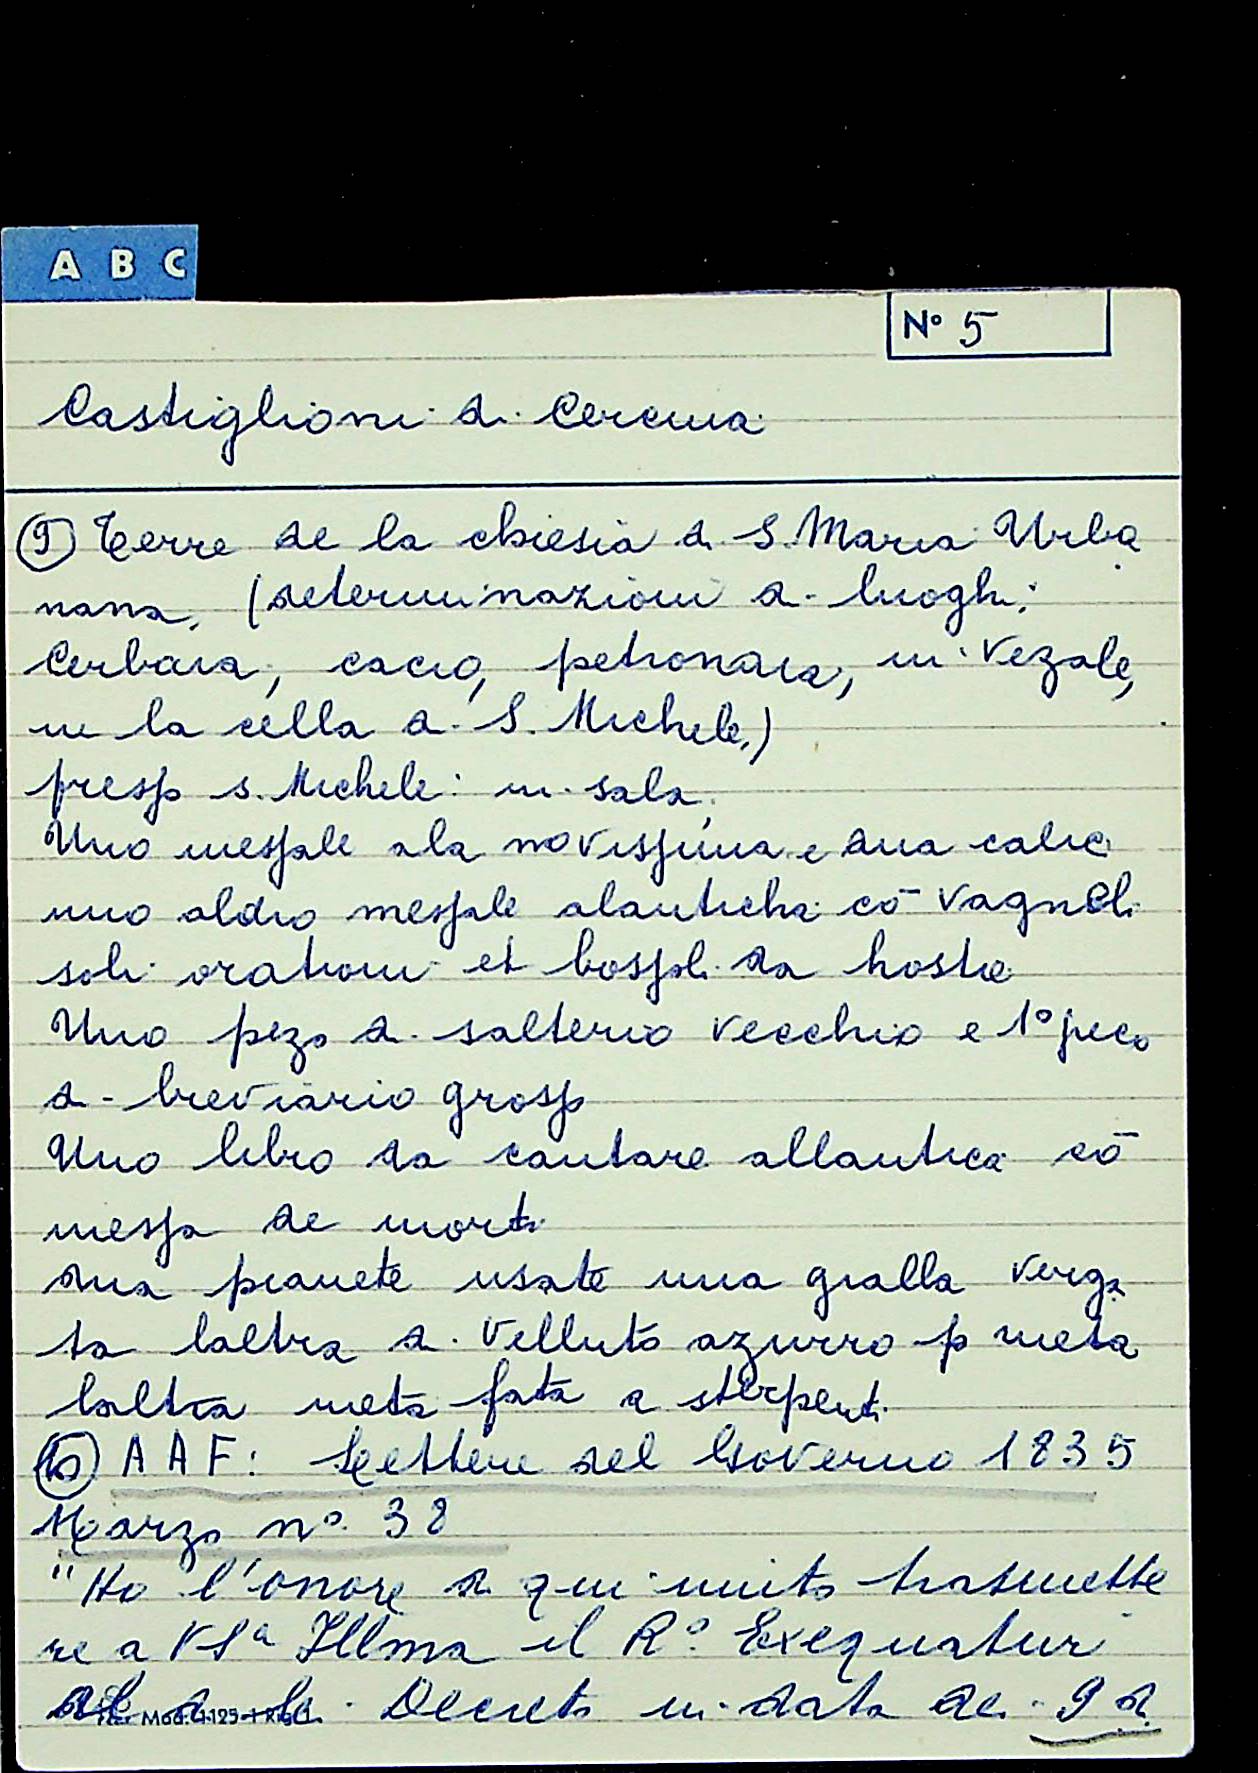 A B C
Nº 5
Castiglioni di Cercina
9) Terre de la chiesia di S. Maria Urba
nana, (determinazioni di luoghi:
Cerbaia, cacio, petronaia, in Vezale,
in la cella di S. Michele,)
presso s. Michele: in sala,
Uno messale ala novissima e dua calici
uno aldro messale alanticha cō vagneli
soli orationi et bossoli da hostie
Uno pezo di salterio vecchio e 1º pezo
di breviario grosso
Uno libro da cantare allantica cō
messa de morti
dua pianete usate una gialla verga
ta laltra di velluto azurro p meta
laltra meta fata a sterpenti
10) A A F: Lettere del Governo 1835
Marzo nº. 38
"Ho l'onore di qui unito trasmette
re a VSª Illma il Rº. Exequatur
Decreto in data de 9 di